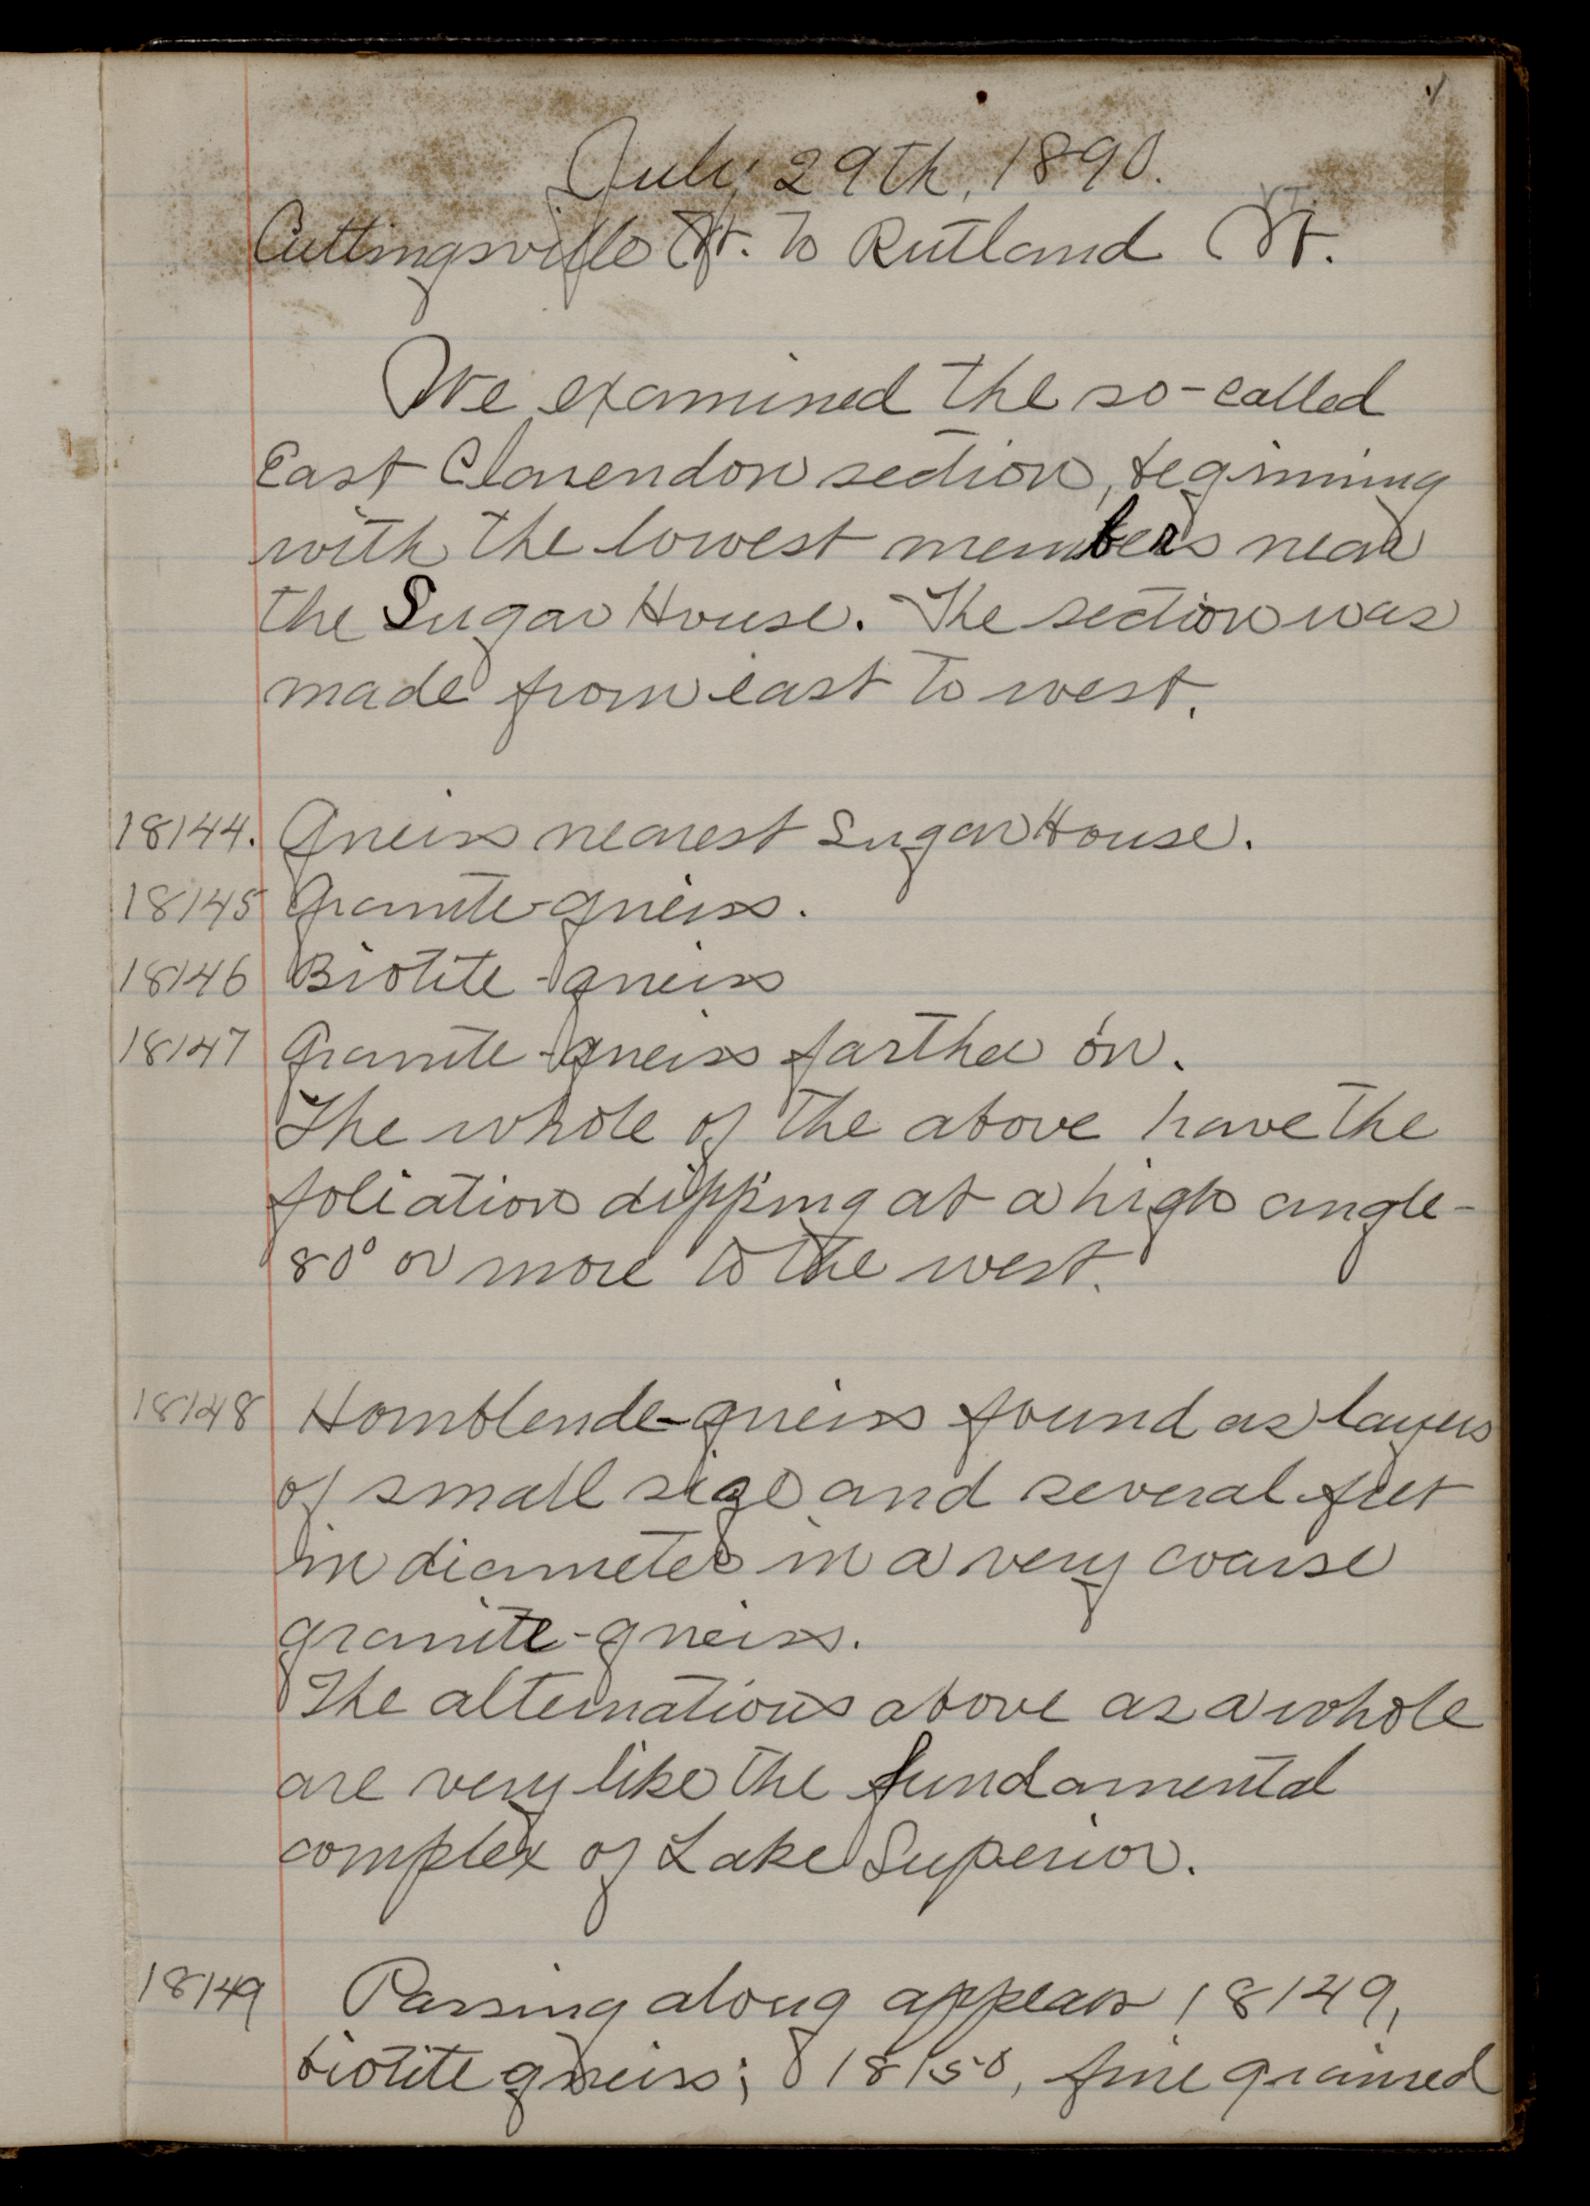 1
July 29th, 1890.
VT.
Cuttingsville Vt. to Rutland Vt.
We examined the so-called
East Clarendon section, beginning
with the lowest members near
the Sugar House. The section was
made from east to west.
18144. Gneiss nearest Sugar House.
18145 Granite-gneiss.
18146 Biotite-gneiss
18147 Granite-gneiss farther on.
The whole of the above have the
foliation dipping at a high angle-
80° or more to the west.
18148 Hornblende-gneiss found as layers
of small size and several feet
in diameter in a very coarse
granite-gneiss.
The alternations above as a whole
are very like the fundamental
complex of Lake Superior.
18149 Passing along appears 18149,
biotite gneiss; 18150, fine grained